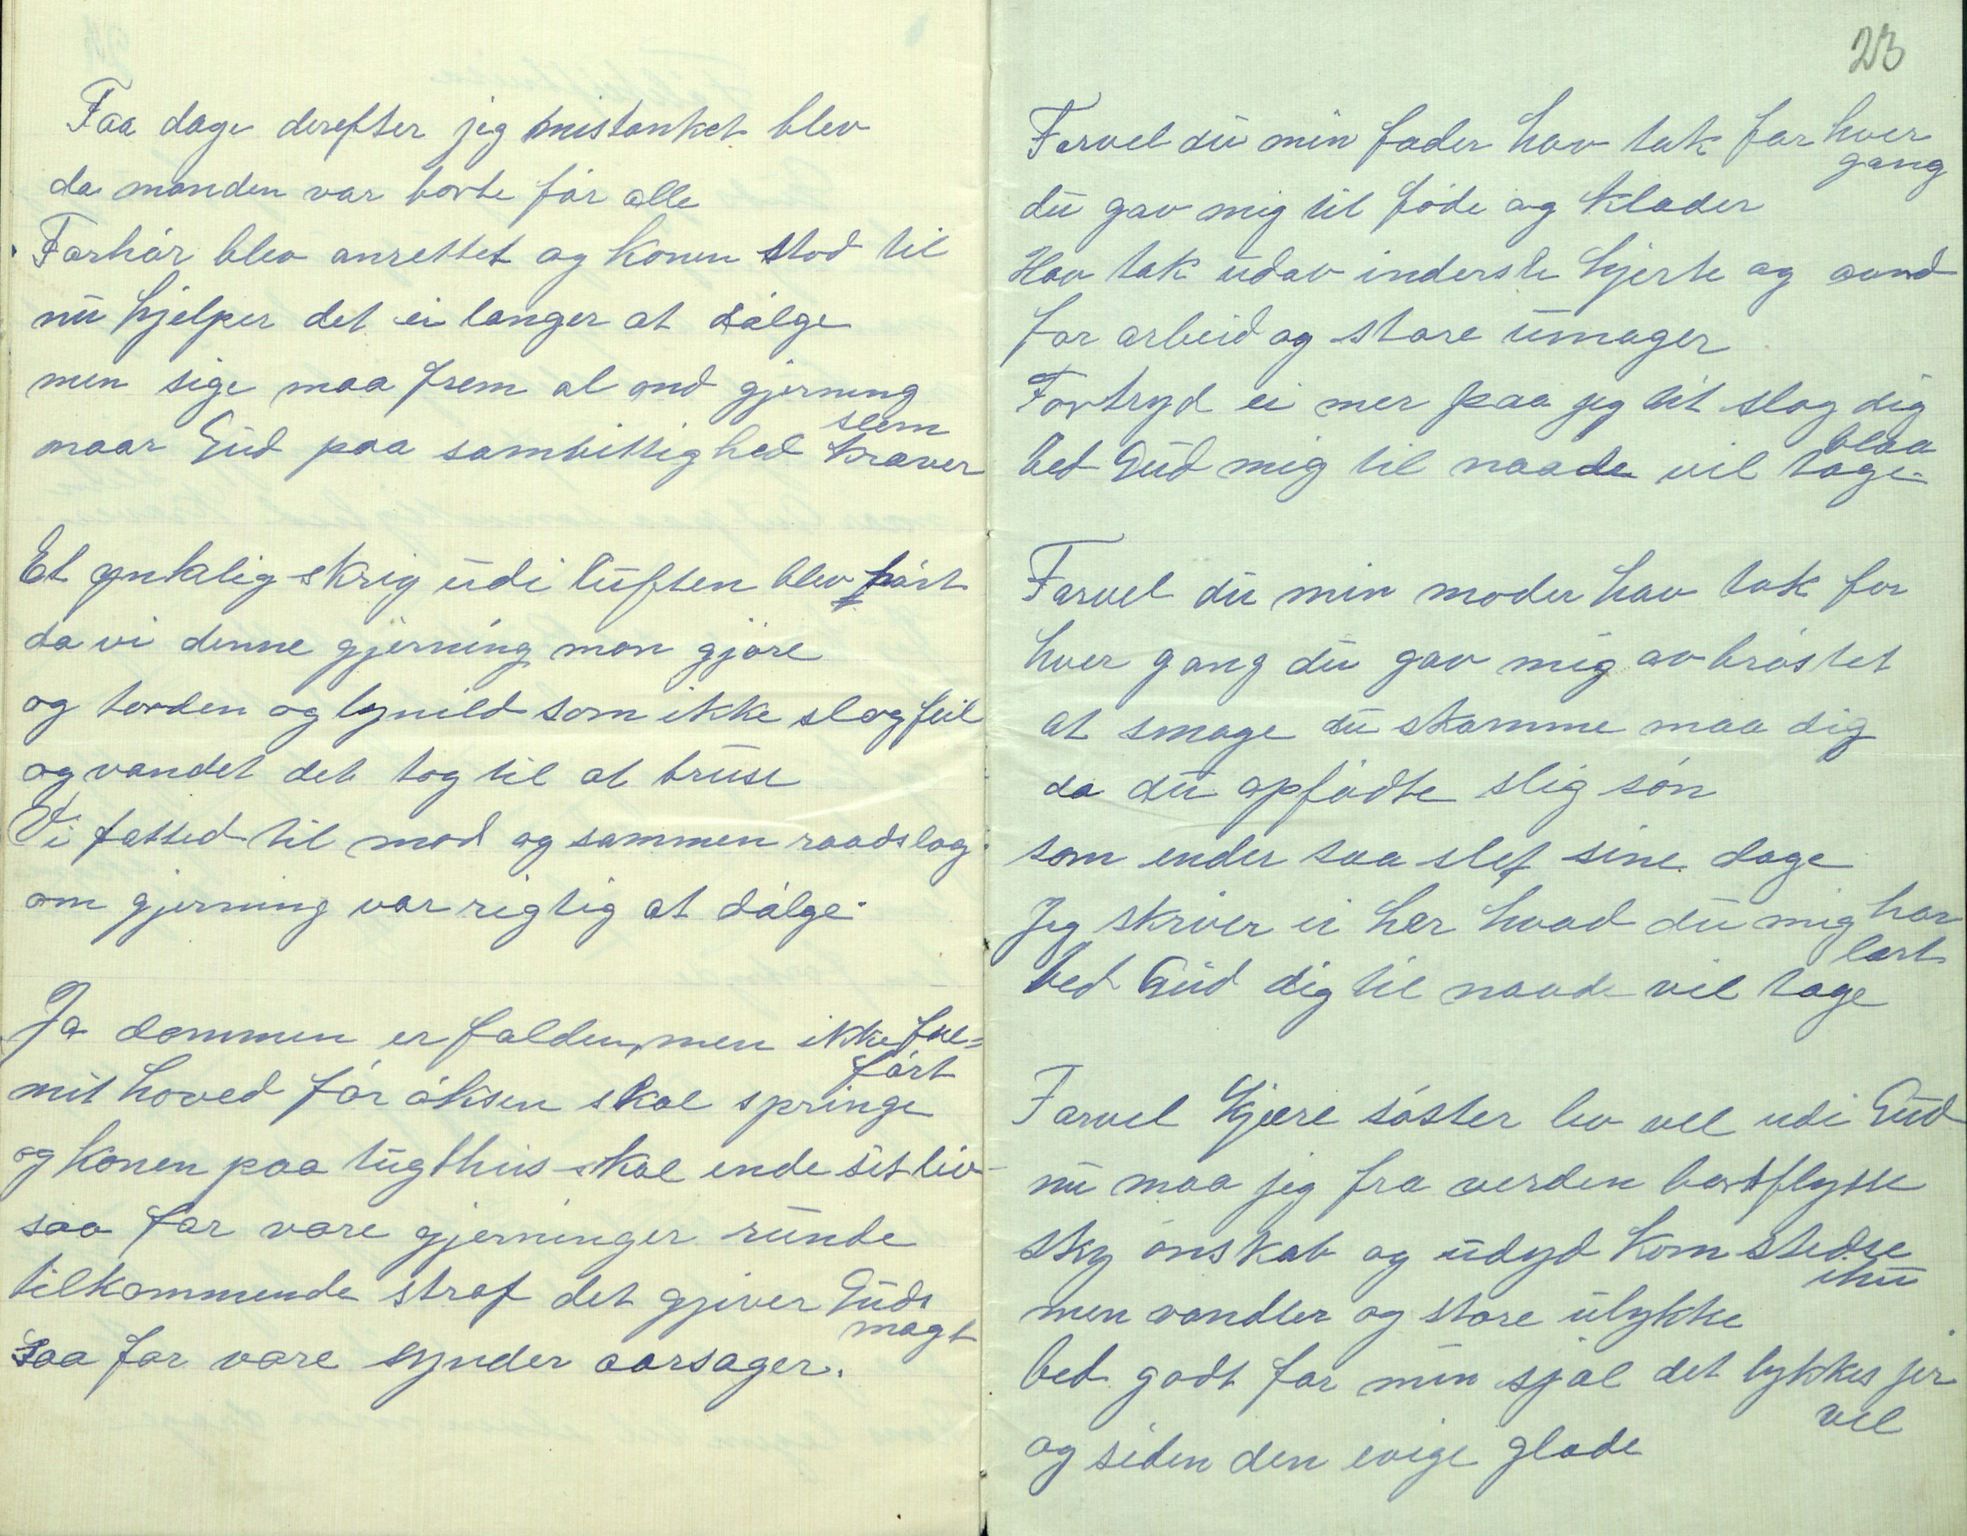 Faa dage derefter jeg mistanket blev
da manden var borte får alle
Farhår blev anrettet og konen stod til
nu hjelper det ei langer at dålge
men sige maa frem al ond gjerning
slem
naar Gud paa samvittighed kraver
Et ynklig skrig udi luften blev hårt
da vi denne gjerning mon gjåre
og torden og lynild som ikke slog feil
og vandet det tog til at bruse
Vi fatted til mod og sammen raadslog
om gjerning var rigtig at dålge.
Ja dommen er falden, men ikke ful=
fårt
mit hoved får åksen skal springe
og konen paa tugthus skal ende sit liv
saa far vare gjerninger runde
tilkommende straf det gjiver Guds
magt
saa far vare synder aarsager.
23
Farvel du min fader hav tak far hver
gang
du gav mig til fåde og klader
Hav tak udav inderste hjerte og aand
for arbeid og store umager
Fortryd ei mer paa jeg tit slog dig
blaa
bed Gud mig til naade vil tage
Farvel du min moder hav tak for
hver gang du gav mig av bråstet
at smage du skamme maa dig
da du opfådte slig sån
som ender saa slet sine dage
Jeg skriver ei her hvad du mig har
lart
bed Gud dig til naade vil tage
Farvel kjere såster lev vel udi Gud
nu maa jeg fra verden bortflytte
sky onskab og udyd kom stedse
ihu
men vandler og store ulykke
bed godt far min sjal det lykkes jer
vel
og siden den evige glade